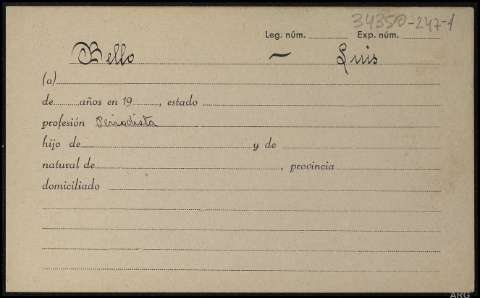 34350-247-1
Leg. núm. Exp. núm.
Bello — Luis
(a)
de años en 19 , estado
profesión Periodista
hijo de y de
natural de , provincia
domiciliado
ARG